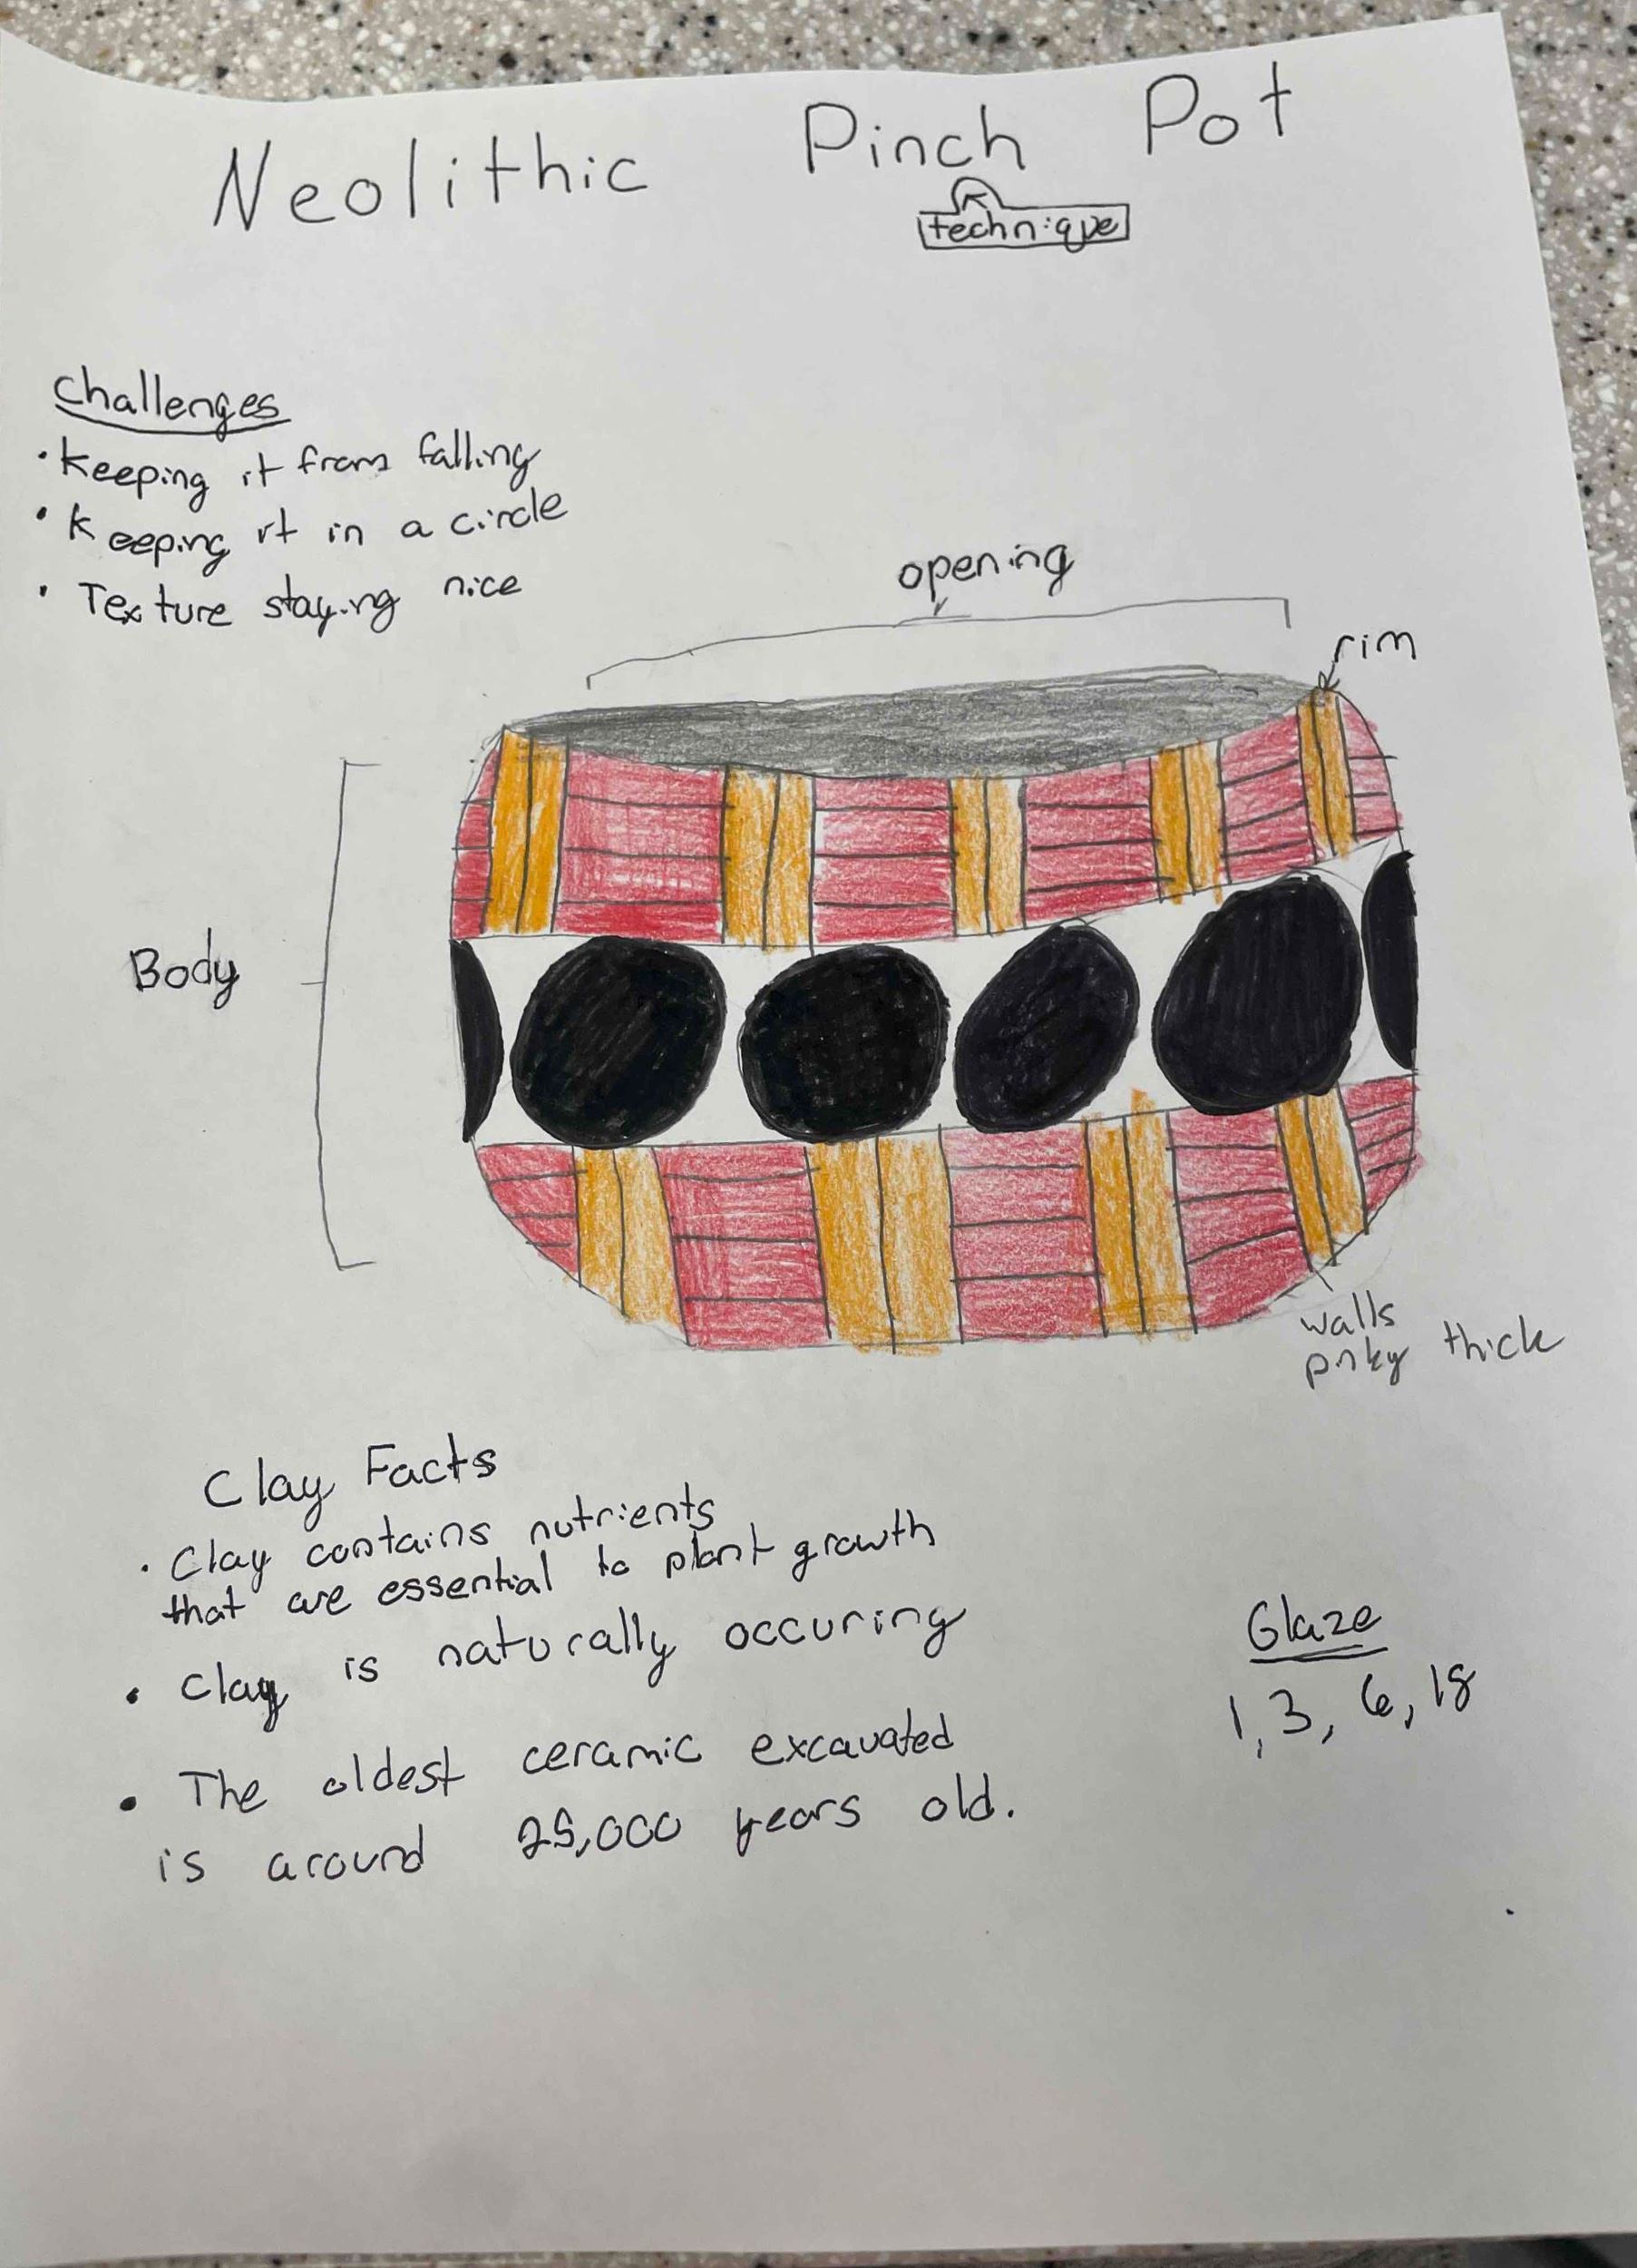 Neolithic Pinch Pot
technique
Challenges
• Keeping it from falling
• Keeping it in a circle
• Texture staying nice
opening
rim
Body
walls
pnky thick
Clay Facts
• Clay contains nutrients
that are essential to plant growth
• Clay is naturally occuring
• The oldest ceramic excavated
is around 25,000 years old.
Glaze
1, 3, 6, 18